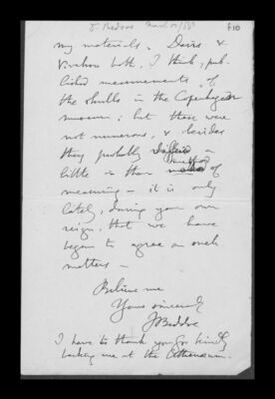 J. Beddoe 610
my materials. Davis &
Virchow both, I think, pub-
lished measurements of
the skulls in the Copenhagen
museum; but these were
not numerous, & besides
they probably differed a
little in their method of
measuring — it is only
lately, during your own
reign, that we have
begun to agree on such
matters —
Believe me
Yours sincerely
J Beddoe
I have to thank you for kindly
backing me at the Athenaeum.